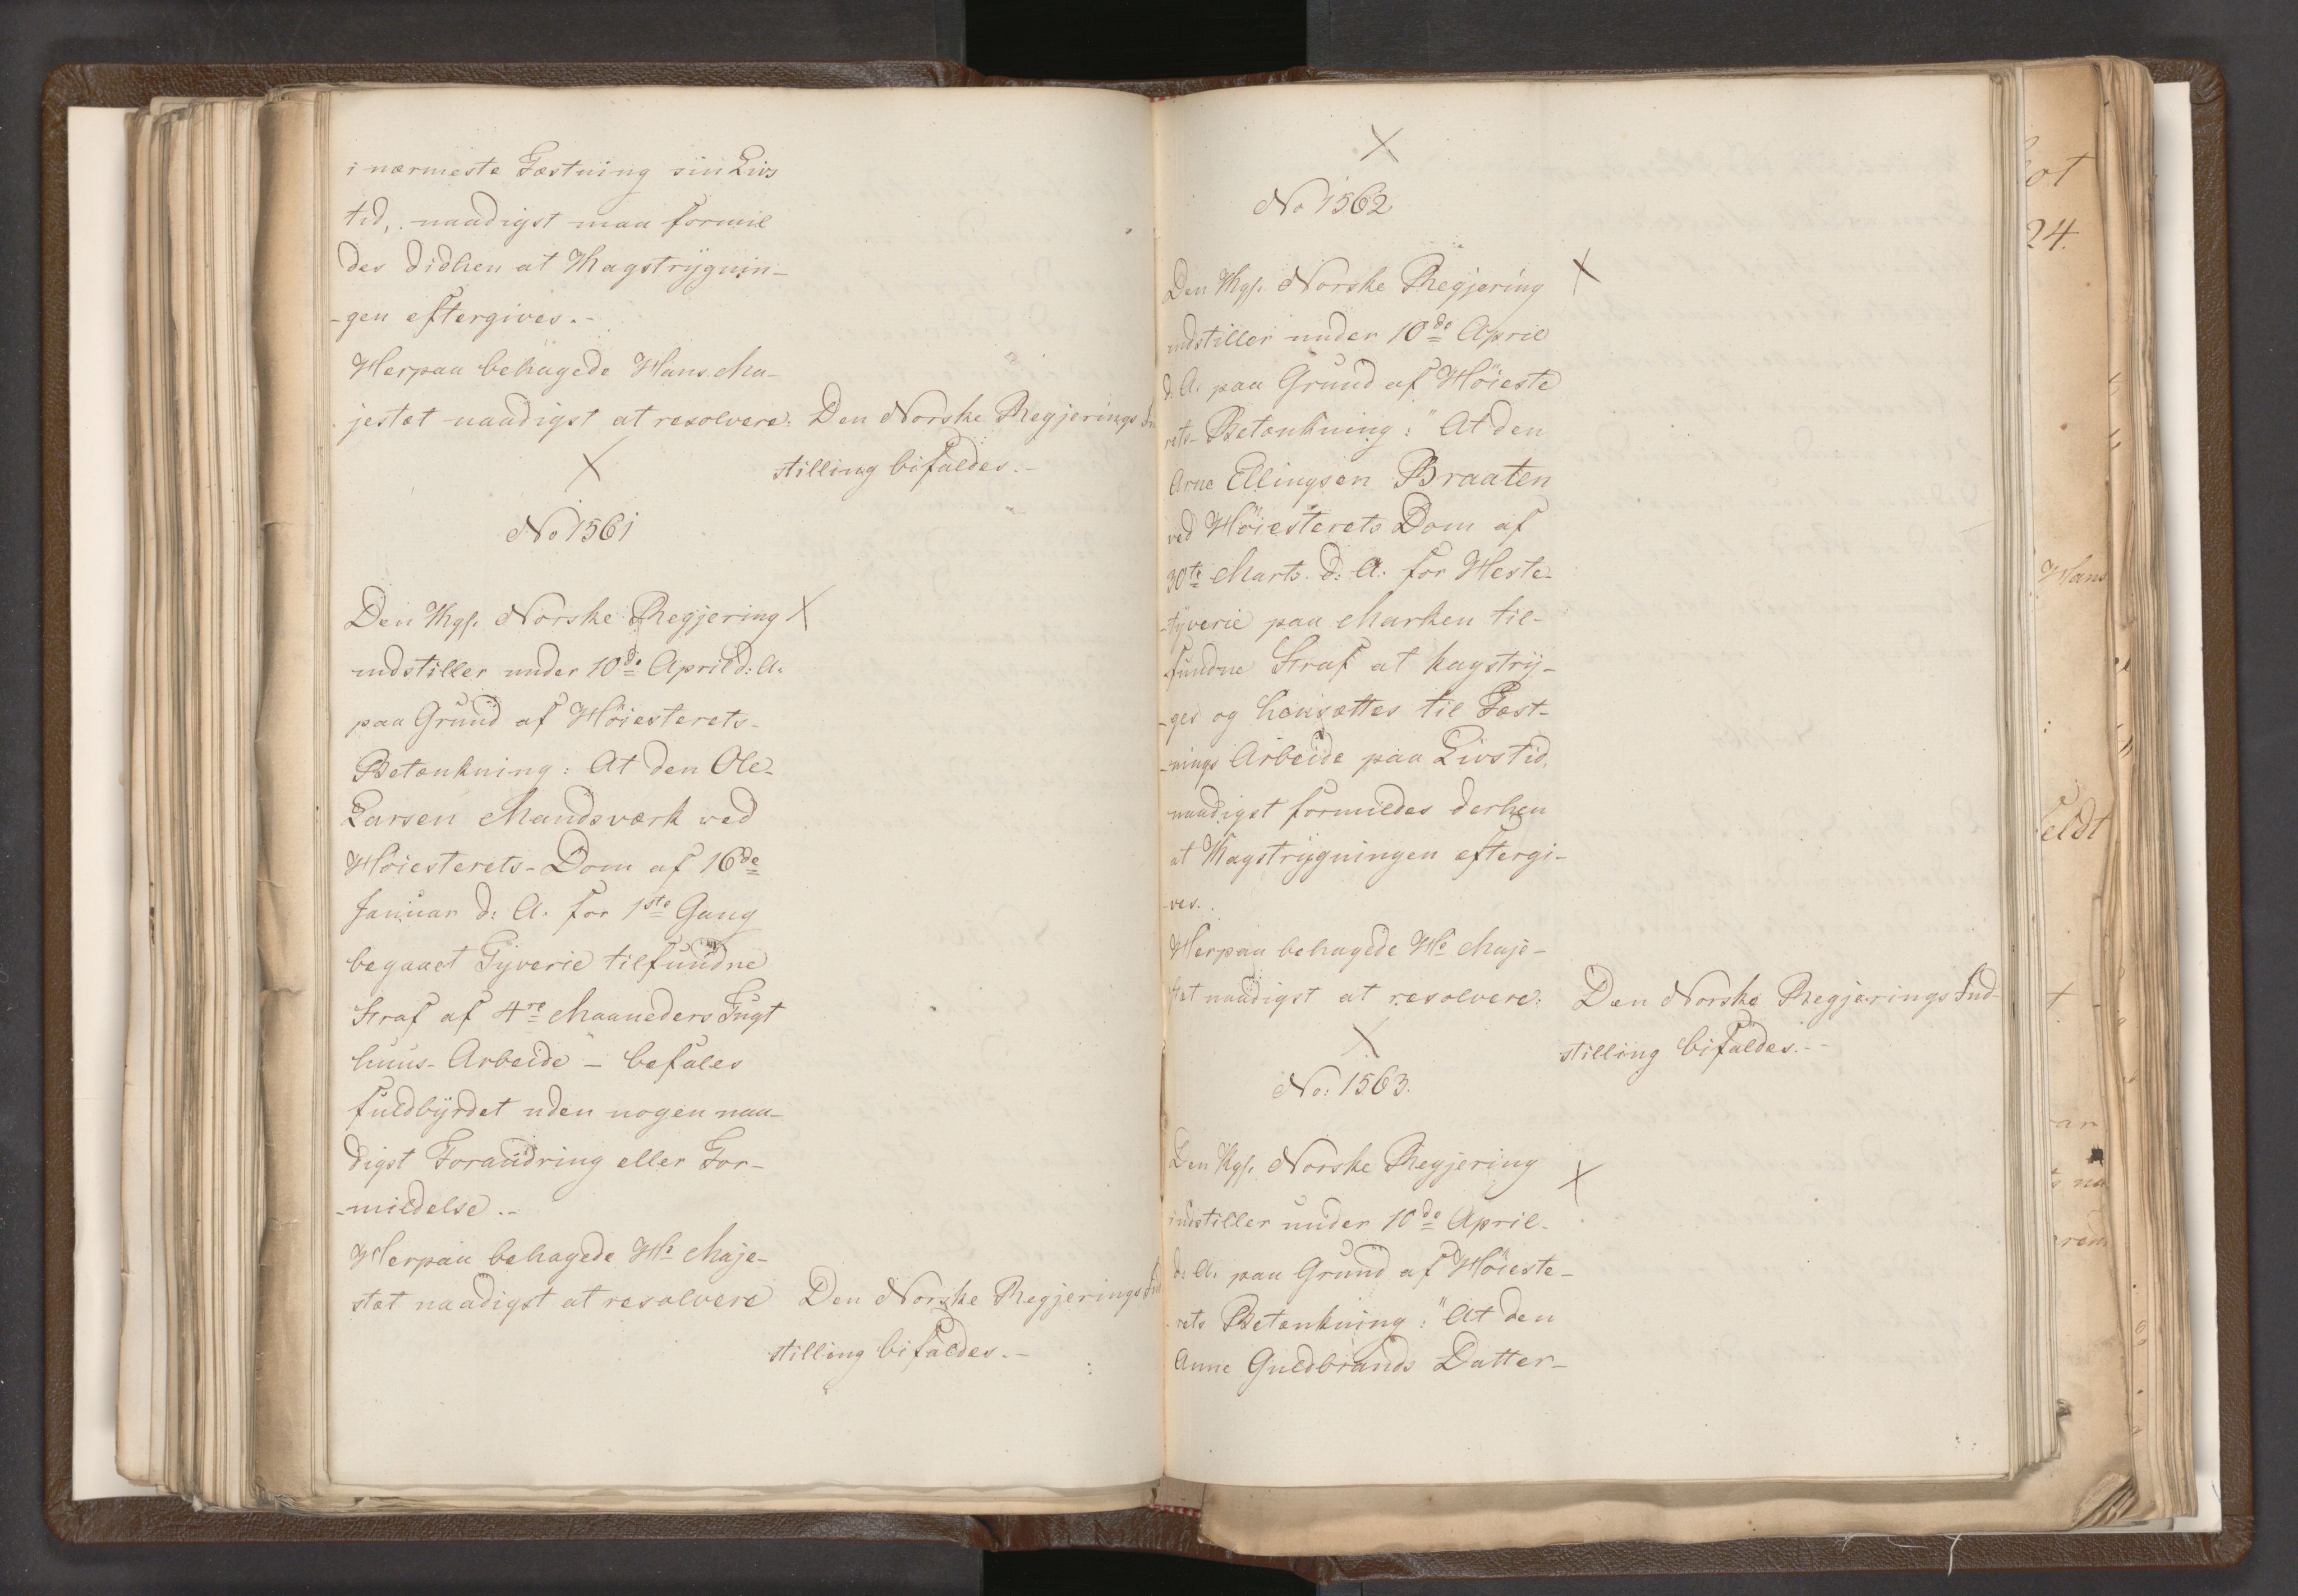 i nærmeste Fæstning sin Livs
tid, naadigst maa formil
des didhen at Kagstrygnin-
-gen eftergives.-
Herpaa behagede Hans Ma-
jestæt naadigst at resolvere: Den Norske Regjerings In
stilling bifaldes.-
X
No 1561
Den Kgl. Norske Regjering X
indstiller under 10de April d: A.
paa Grund af Høiesterets-
Betænkning: At den Ole
Larsen Mandsværk ved
Høiesterets-Dom af 16de
Januar d: A. for 1ste Gang
begaaet Tyverie tilfundne
Straf af 4re Maaneders Tugt
huus-Arbeide - befales
fuldbyrdet uden nogen naa-
digst Forandring eller For-
-mildelse.-
Herpaa behagede Hs Maje-
stæt naadigst at resolvere Den Norske Regjerings Ind
stilling bifaldes.-
X
No 1562
Den Kgl. Norske Regjering X
indstiller under 10de April
d. A. paa Grund af Høieste
rets-Betænkning: "At den
Arne Ellingsen Braaten
ved Høiesterets Dom af
30te Marts d: A: for Heste-
-tyverie paa Marken til-
-fundne Straf at kagstry-
-ges og hensættes til Fæst-
-nings Arbeide paa Livstid,
naadigst formildes derhen
at Kagstrygningen eftergi-
-ves.
Herpaa behagede Hs Maje-
stæt naadigst at resolvere: Den Norske Regjerings Ind-
stilling bifaldes.-
X
No: 1563.
Den Kgl. Norske Regjering X
indstiller under 10de April
d: A. paa Grund af Høieste-
-rets Betænkning: "At den
Anne Guldbrands Datter-
ot
24.
Hans
eldt
ar
na